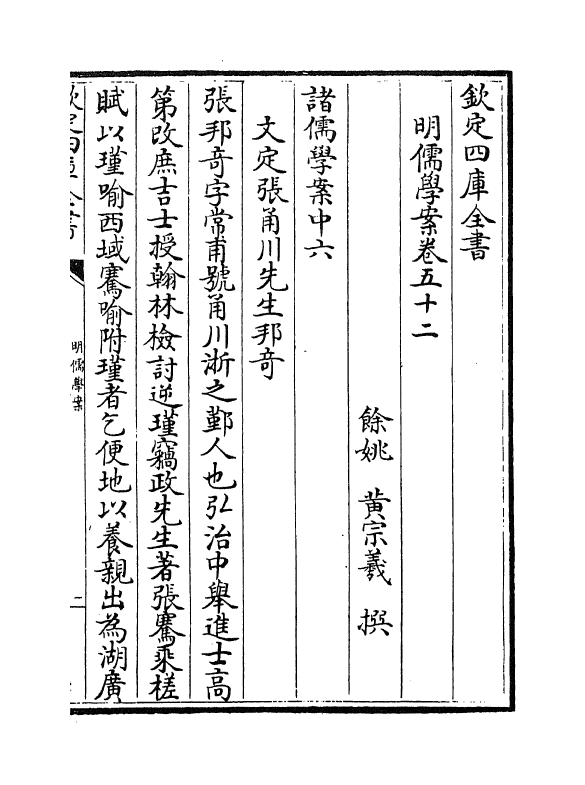 欽定四庫全書
明儒學案卷五十二
餘姚 黃宗羲 撰
諸儒學案中六
文定張甬川先生邦奇
張邦奇字常甫號甬川浙之鄞人也弘治中舉進士高
第改庶吉士授翰林檢討逆瑾竊政先生著張騫乘槎
賦以瑾喻西域騫喻附瑾者乞便地以養親出為湖廣
欽定四庫全書
明儒學案